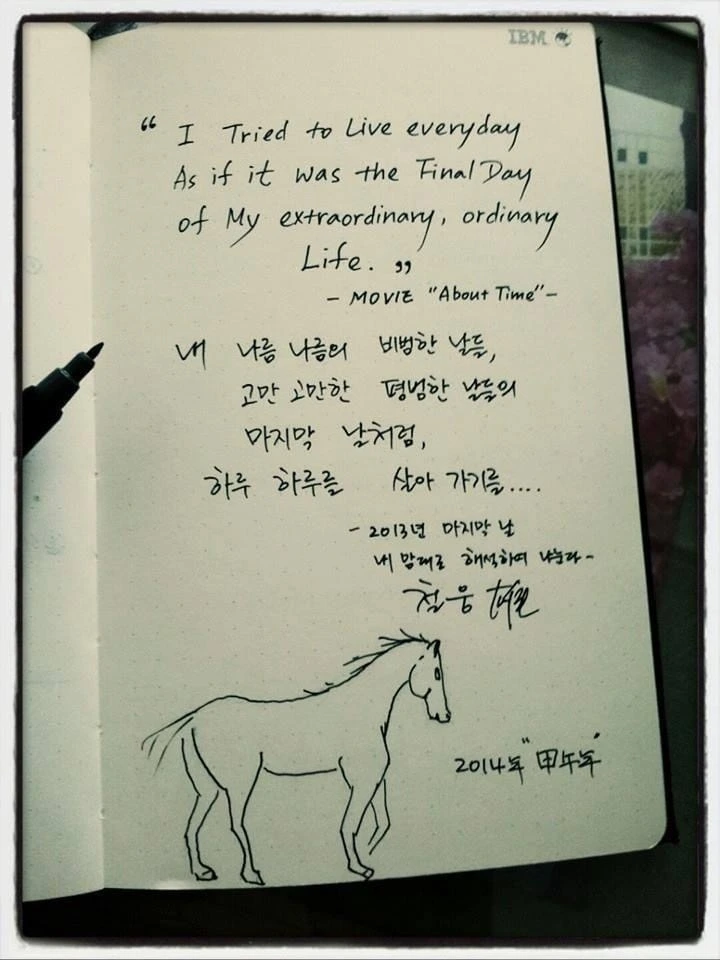 IBM
“ I Tried to Live everyday
As if it was the Final Day
of My extraordinary, ordinary
Life. ”
- MOVIE "About Time" -
내 나름 나름의 비범한 날들,
고만 고만한 평범한 날들의
마지막 날처럼,
하루 하루를 살아 가기를....
- 2013년 마지막 날
내 맘대로 해석하여 나눈다 -
철웅
2014年 "甲午年"